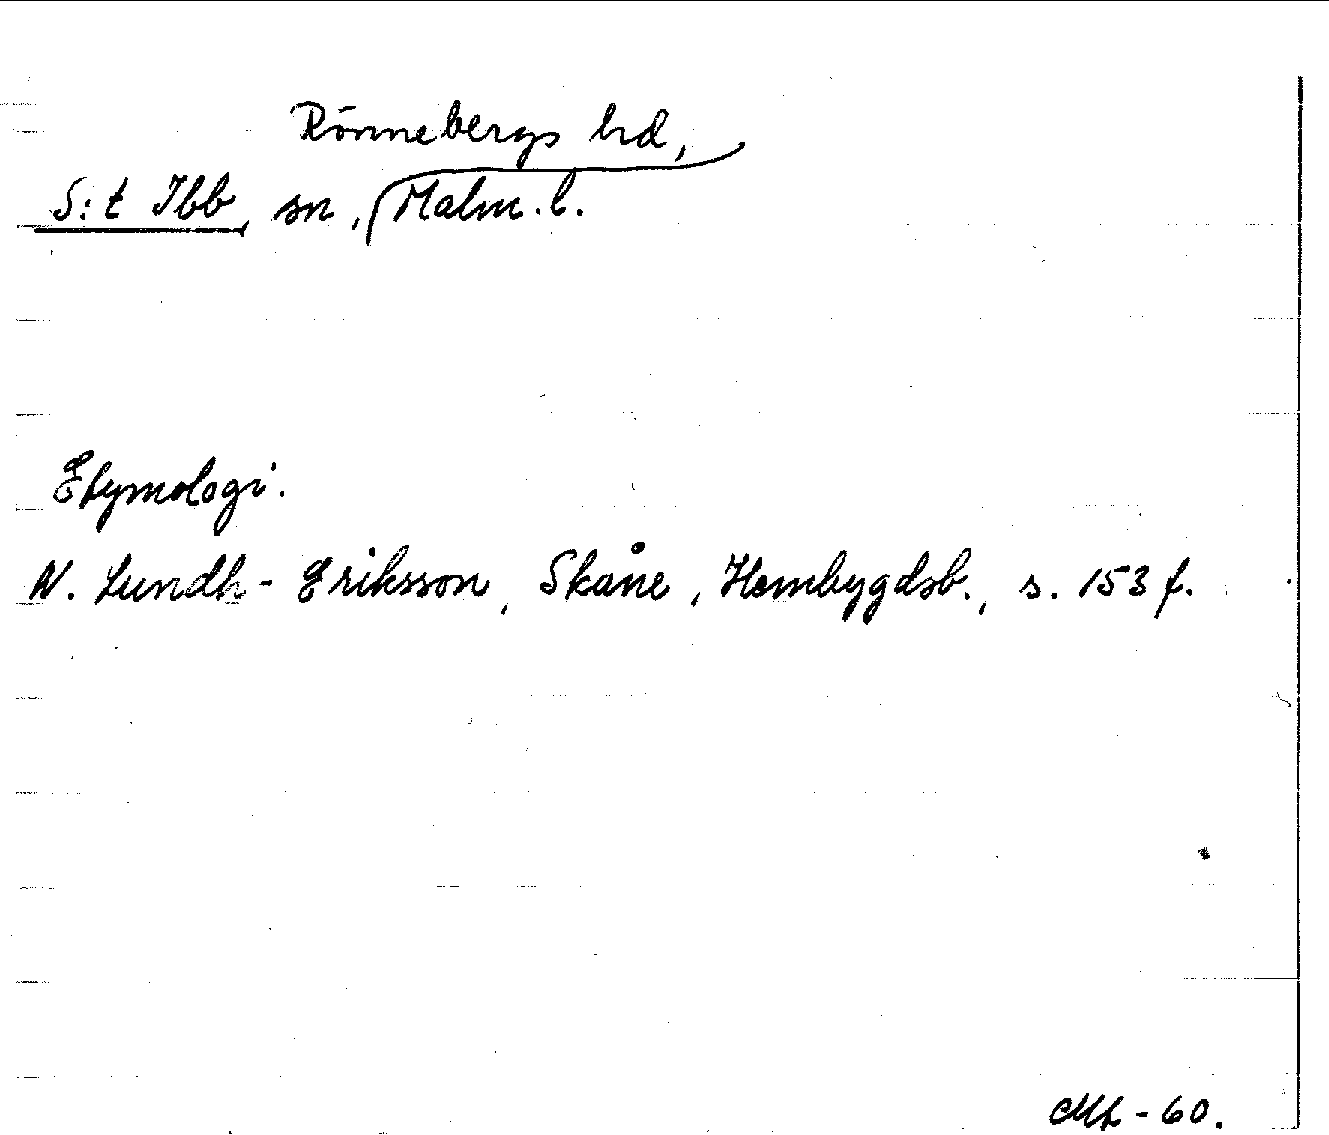 Rönnebergs hd,
S:t Ibb, sn, Malm. l.
Etymologi.
N. Lundh-Eriksson, Skåne, Hembygdsb., s. 153 f.
-60.